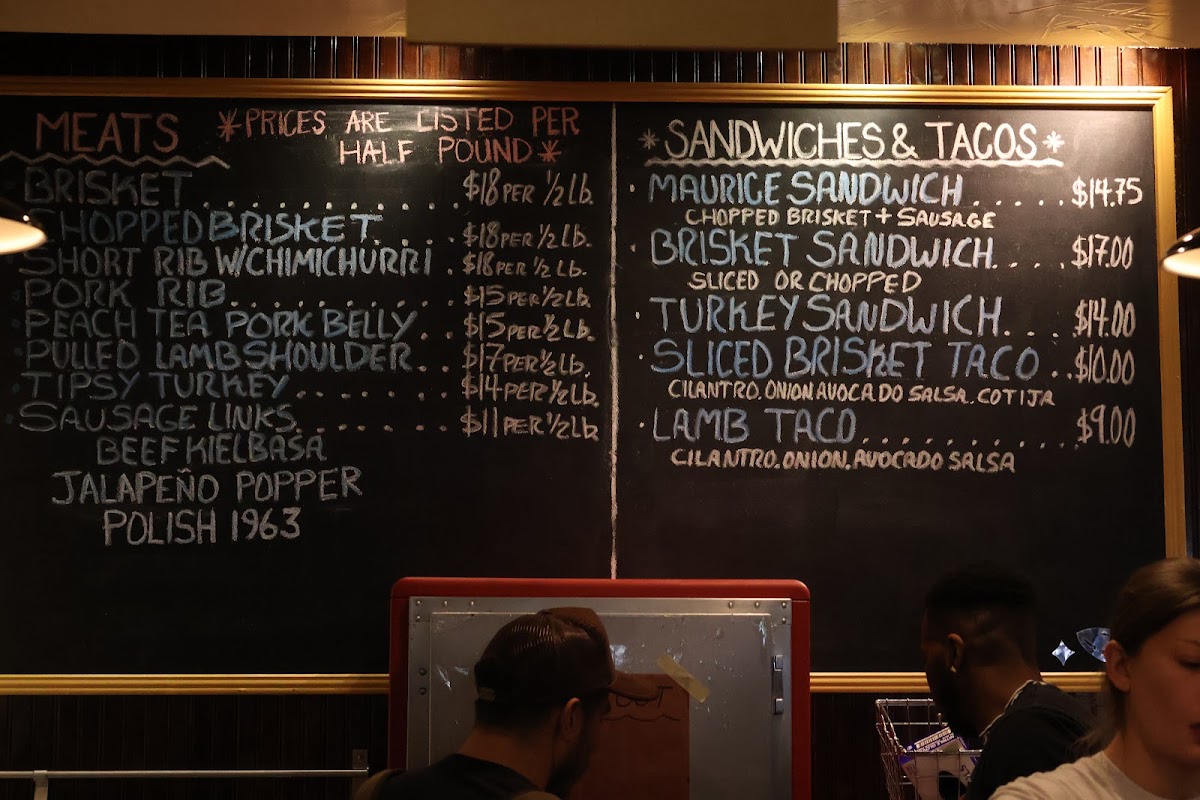 MEATS *PRICES ARE LISTED PER
HALF POUND*
BRISKET.........$18 PER ½ LB.
CHOPPED BRISKET....$18 PER ½ LB.
SHORT RIB W/CHIMICHURRI.$18 PER ½ LB.
PORK RIB.........$15 PER ½ LB.
PEACH TEA PORK BELLY..$15 PER ½ LB.
PULLED LAMB SHOULDER..$17 PER ½ LB.
TIPSY TURKEY.......$14 PER ½ LB.
SAUSAGE LINKS.......$11 PER ½ LB
BEEF KIELBASA
JALAPEÑO POPPER
POLISH 1963
*SANDWICHES & TACOS*
MAURICE SANDWICH.....$14.75
CHOPPED BRISKET + SAUSAGE
BRISKET SANDWICH....$17.00
SLICED OR CHOPPED
TURKEY SANDWICH...$14.00
SLICED BRISKET TACO..$10.00
CILANTRO.ONION.AVOCADO SALSA.COTIJA
LAMB TACO...........$9.00
CILANTRO.ONION.AVOCADO SALSA